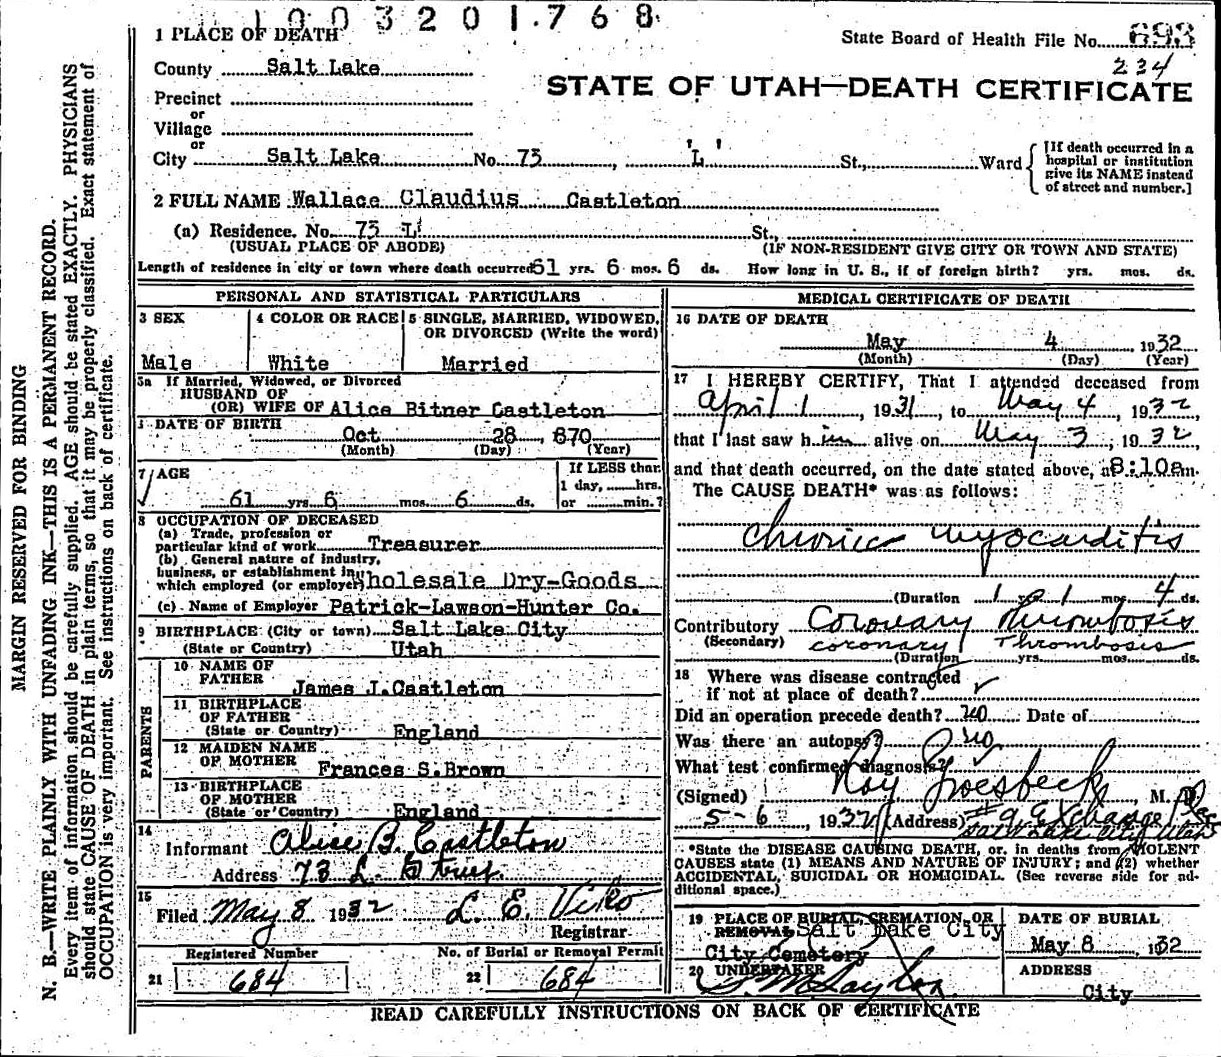 1003201768
1 PLACE OF DEATH
State Board of Health File No. 693
234
County Salt Lake
STATE OF UTAH—DEATH CERTIFICATE
Precinct
or
Village
or
City Salt Lake No. 73 , 'L' St., Ward
[If death occurred in a hospital or institution give its NAME instead of street and number.]
2 FULL NAME Wallace Claudius Castleton
(a) Residence. No. 73 L' St.,
(USUAL PLACE OF ABODE) (IF NON-RESIDENT GIVE CITY OR TOWN AND STATE)
Length of residence in city or town where death occurred 61 yrs. 6 mos. 6 ds. How long in U. S., if of foreign birth? yrs. mos. ds.
PERSONAL AND STATISTICAL PARTICULARS
3 SEX
Male
4 COLOR OR RACE
White
5 SINGLE, MARRIED, WIDOWED, OR DIVORCED (Write the word)
Married
5a If Married, Widowed, or Divorced
HUSBAND OF
(OR) WIFE OF Alice Bitner Castleton
DATE OF BIRTH
Oct 28 , 870
(Month) (Day) (Year)
7 AGE
61 yrs 6 mos. 6 ds.
If LESS than
1 day, hrs.
or min.?
8 OCCUPATION OF DECEASED
(a) Trade, profession or
particular kind of work Treasurer
(b) General nature of industry,
business, or establishment in
which employed (or employer) Wholesale Dry-Goods
(c) Name of Employer Patrick-Lawson-Hunter Co.
9 BIRTHPLACE (City or town) Salt Lake City
(State or Country) Utah
PARENTS
10 NAME OF
FATHER James J. Castleton
11 BIRTHPLACE
OF FATHER
(State or Country) England
12 MAIDEN NAME
OF MOTHER Frances S. Brown
13 BIRTHPLACE
OF MOTHER
(State or Country) England
14
Informant Alice B. Castleton
Address 73 L Street
15
Filed May 8 1932 L. E. Viko
Registrar
Registered Number
21 684
No. of Burial or Removal Permit
22 684
MEDICAL CERTIFICATE OF DEATH
16 DATE OF DEATH
May 4 , 1932
(Month) (Day) (Year)
17 I HEREBY CERTIFY, That I attended deceased from
April 1 , 1931, to May 4 , 1932
that I last saw him alive on May 3 , 1932
and that death occurred, on the date stated above, at 8:10am.
The CAUSE DEATH* was as follows:
Chronic myocarditis
(Duration 1 yrs 1 mos. 4 ds.
Contributory Coronary Thrombosis
(Secondary) coronary Thrombosis
(Duration yrs. mos. ds.
18 Where was disease contracted
if not at place of death?
Did an operation precede death? no Date of
Was there an autopsy? no
What test confirmed diagnosis?
(Signed) Roy Groesbeck , M. D.
5-6 , 1932 (Address) #9 Exchange Place
Salt Lake City Utah
*State the DISEASE CAUSING DEATH, or, in deaths from VIOLENT
CAUSES state (1) MEANS AND NATURE OF INJURY; and (2) whether
ACCIDENTAL, SUICIDAL OR HOMICIDAL. (See reverse side for additional space.)
19 PLACE OF BURIAL, CREMATION, OR
REMOVAL Salt Lake City
City Cemetery
DATE OF BURIAL
May 8 , 132
20 UNDERTAKER
ADDRESS
City
READ CAREFULLY INSTRUCTIONS ON BACK OF CERTIFICATE
MARGIN RESERVED FOR BINDING
N. B.—WRITE PLAINLY WITH UNFADING INK—THIS IS A PERMANENT RECORD.
Every item of information should be carefully supplied. AGE should be stated EXACTLY. PHYSICIANS
should state CAUSE OF DEATH in plain terms, so that it may be properly classified. Exact statement of
OCCUPATION is very important. See instructions on back of certificate.